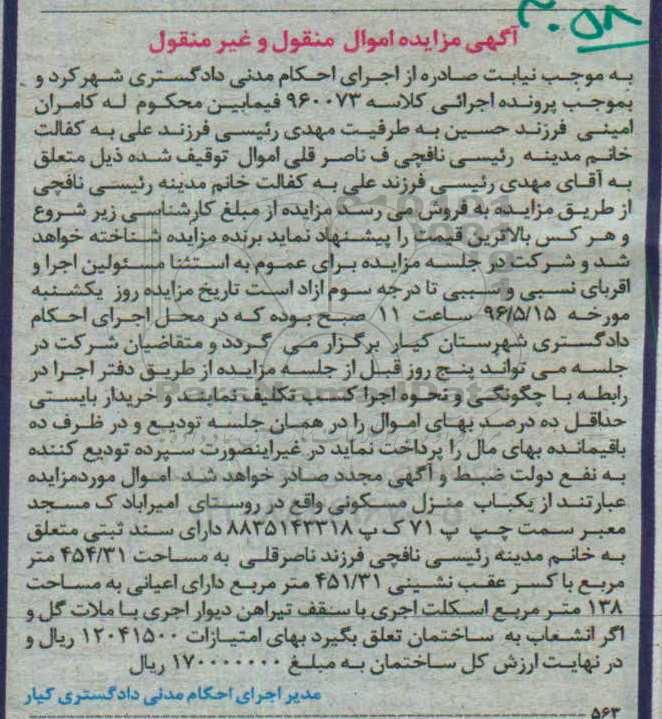 ۳۰۵۸
آگهی مزایده اموال منقول و غیر منقول
به موجب نیابت صادره از اجرای احکام مدنی دادگستری شهرکرد و
بموجب پرونده اجرائی کلاسه ۹۶۰۰۷۳ فیمابین محکوم له کامران
امینی فرزند حسین به طرفیت مهدی رئیسی فرزند علی به کفالت
خانم مدینه رئیسی نافچی ف ناصر قلی اموال توقیف شده ذیل متعلق
به آقای مهدی رئیسی فرزند علی به کفالت خانم مدینه رئیسی نافچی
از طریق مزایده به فروش می رسد مزایده از مبلغ کارشناسی زیر شروع
و هر کس بالاترین قیمت را پیشنهاد نماید برنده مزایده شناخته خواهد
شد و شرکت در جلسه مزایده برای عموم به استثنا مسئولین اجرا و
اقربای نسبی و سببی تا درجه سوم ازاد است تاریخ مزایده روز یکشنبه
مورخه ۹۶/۵/۱۵ ساعت ۱۱ صبح بوده که در محل اجرای احکام
دادگستری شهرستان کیار برگزار می گردد و متقاضیان شرکت در
جلسه می تواند پنج روز قبل از جلسه مزایده از طریق دفتر اجرا در
رابطه با چگونگی و نحوه اجرا کسب تکلیف نمایند و خریدار بایستی
حداقل ده درصد بهای اموال را در همان جلسه تودیع و در ظرف ده
باقیمانده بهای مال را پرداخت نماید در غیراینصورت سپرده تودیع کننده
به نفع دولت ضبط و آگهی مجدد صادر خواهد شد اموال موردمزایده
عبارتند از یکباب منزل مسکونی واقع در روستای امیراباد ک مسجد
معبر سمت چپ پ ۷۱ ک پ ۸۸۳۵۱۴۳۳۱۸ دارای سند ثبتی متعلق
به خانم مدینه رئیسی نافچی فرزند ناصرقلی به مساحت ۴۵۴/۳۱ متر
مربع با کسر عقب نشینی ۴۵۱/۳۱ متر مربع دارای اعیانی به مساحت
۱۳۸ متر مربع اسکلت اجری با سقف تیراهن دیوار اجری با ملات گل و
اگر انشعاب به ساختمان تعلق بگیرد بهای امتیازات ۱۲۰۴۱۵۰۰ ریال و
در نهایت ارزش کل ساختمان به مبلغ ۱۷۰۰۰۰۰۰۰ ریال
مدیر اجرای احکام مدنی دادگستری کیار
۵۶۳